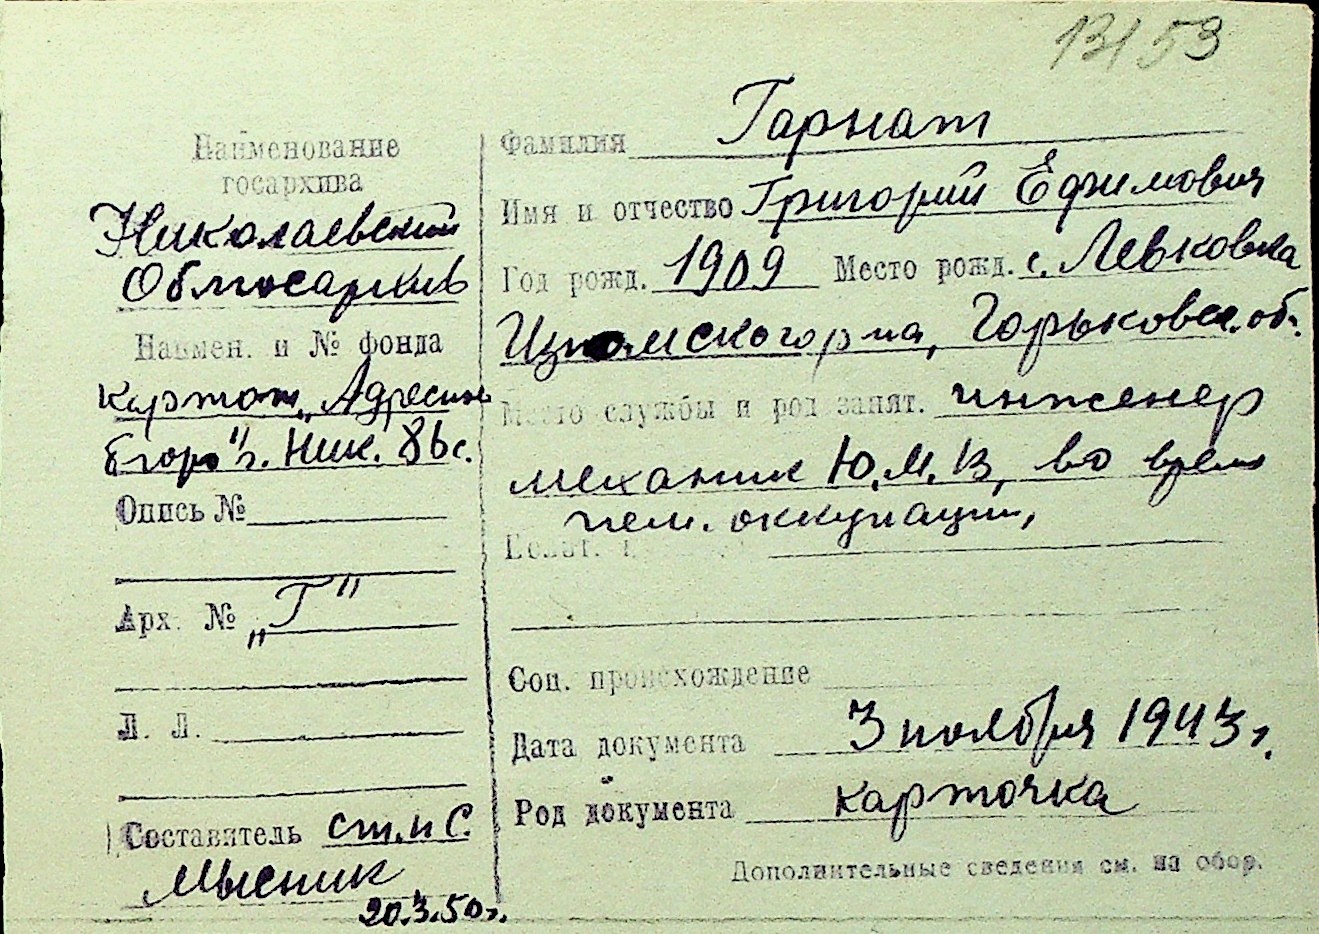 13153
Наименование
госархива
Николаевский
Облгосархив
Наимен. и № фонда
картот. „Адресное
бюро" г. Ник. 86 с.
Опись №
Арх. № „Г"
Л. Л.
Составитель ст. н. с.
Мысник
20.3.50 г.
Фамилия Гарнат
Имя и отчество Григорий Ефимович
Год рожд. 1909 Место рожд. с. Левковка
Изюмского р-на, Горьковск. об.
Место службы и род занят. инженер
механик Ю.М.В, во время
нем. оккупации,
Соц. происхождение
Дата документа 3 ноября 1943 г.
Род документа карточка
Дополнительные сведения см. на обор.